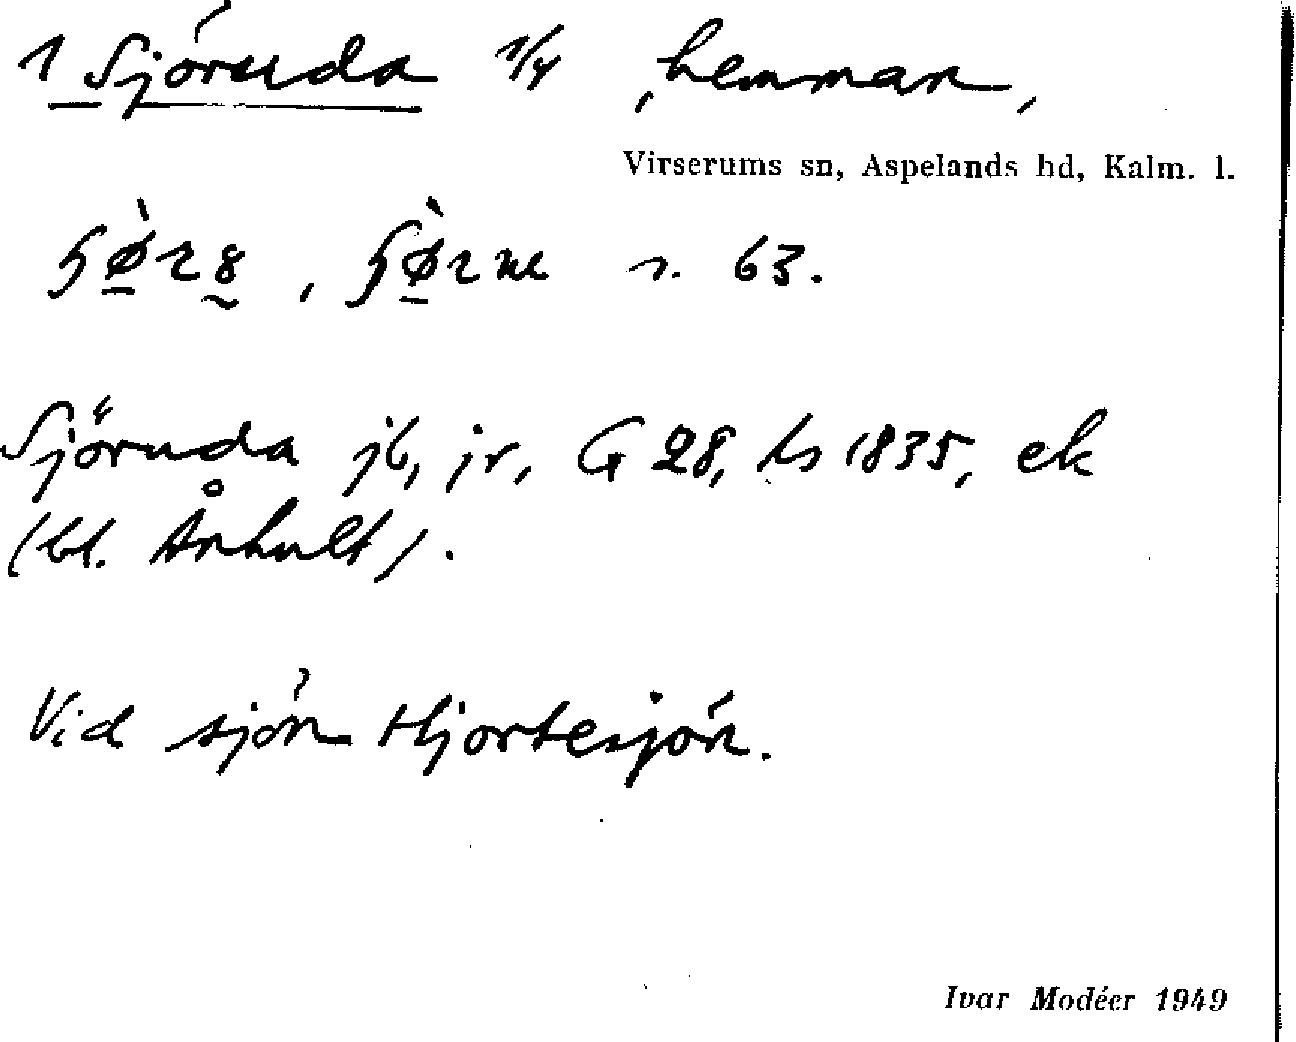 1 Sjöruda 1/4 hemman,
Virserums sn, Aspelands hd, Kalm. l.
s. 63.
Sjöruda jb, jr, G 28, ls 1835, ek
(bl. Århult).
Vid sjön Hjortesjön.
Ivar Modéer 1949